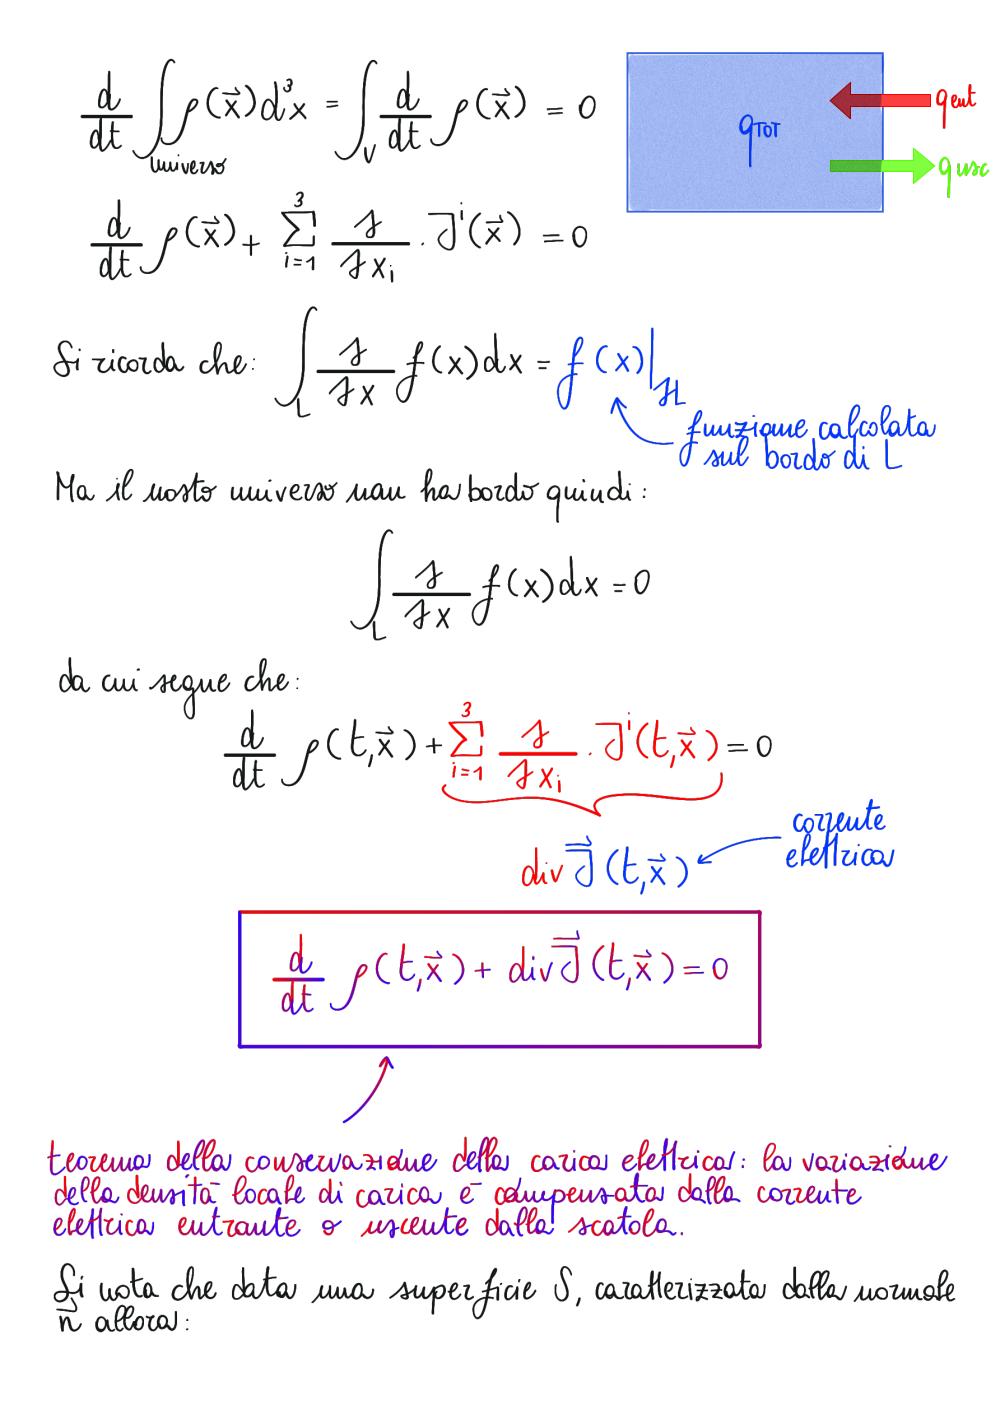 d/dt ∫_universo ρ(x⃗)d³x = ∫_V d/dt ρ(x⃗) = 0
q_TOT
q ent
q usc
d/dt ρ(x⃗) + Σ_{i=1}^{3} ∂/∂x_i · J^i(x⃗) = 0
Si ricorda che: ∫_L ∂/∂x f(x)dx = f(x)|_∂L
funzione calcolata
sul bordo di L
Ma il nosto universo non ha bordo quindi:
∫_L ∂/∂x f(x)dx = 0
da cui segue che:
d/dt ρ(t,x⃗) + Σ_{i=1}^{3} ∂/∂x_i · J^i(t,x⃗) = 0
corrente
elettrica
div J⃗(t,x⃗)
d/dt ρ(t,x⃗) + div J⃗(t,x⃗) = 0
teorema della conservazione della carica elettrica: la variazione
della densità locale di carica è compensata dalla corrente
elettrica entrante o uscente dalla scatola.
Si nota che data una superficie S, caratterizzata dalla normale
n⃗ allora: